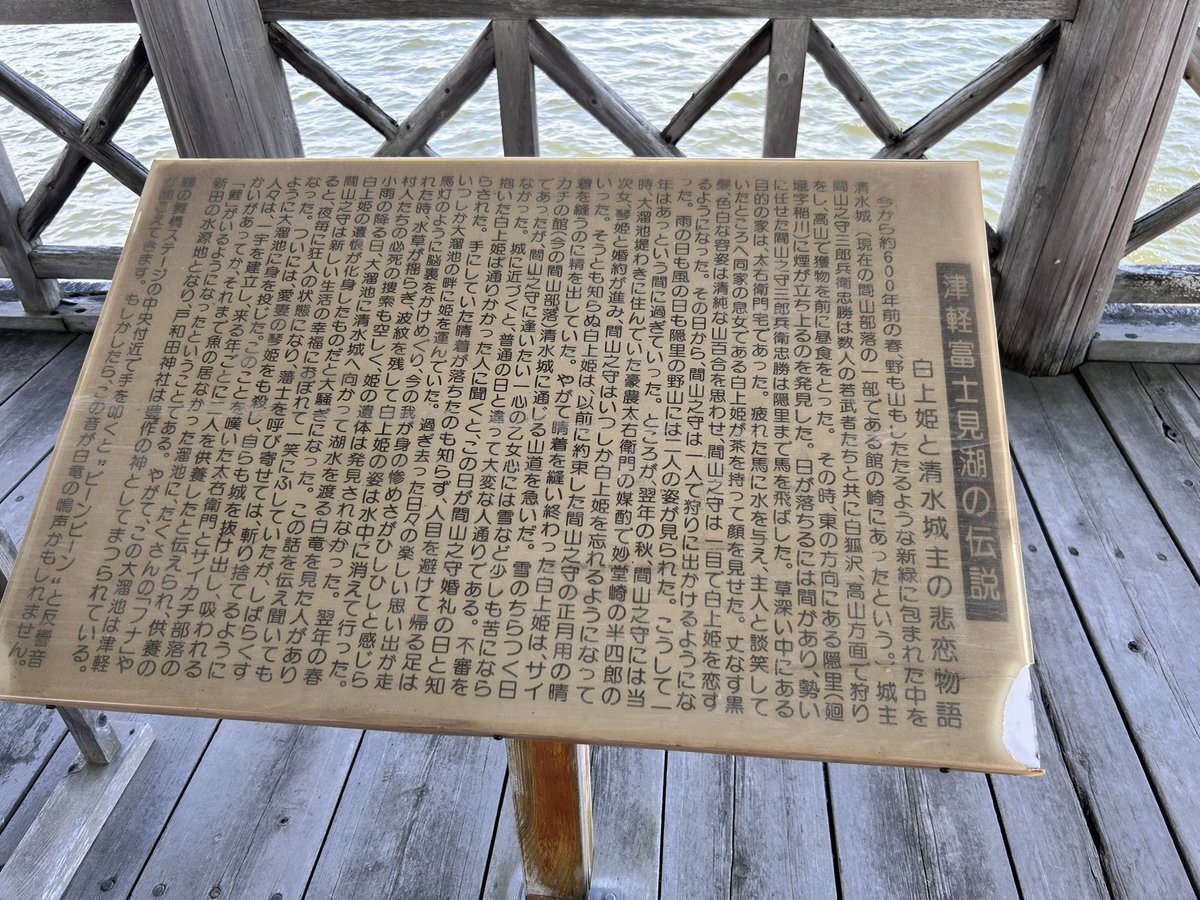 津軽富士見湖の伝説
白上姫と清水城主の悲恋物語
今から約600年前の春、野も山もしたたるような新緑に包まれた中を
清水城(現在の間山部落の一部である館の崎にあったという。)城主
間山之守三郎兵衛忠勝は数人の若武者たちと共に白狐沢、高山方面で狩り
をし、高山で獲物を前に昼食をとった。その時、東の方向にある隠里(廻
堰字稲川)に煙が立ち上るのを発見した。日が落ちるには間があり、勢い
に任せた間山之守三郎兵衛忠勝は隠里まで馬を飛ばした。草深い中にある
目的の家は、太右衛門宅であった。疲れた馬に水を与え、主人と談笑して
いたところへ同家の息女である白上姫が茶を持って顔を見せた。丈なす黒
髪、色白な容姿は清純な山百合を思わせ、間山之守は一目で白上姫を恋す
るようになった。その日から、間山之守は一人で狩りに出かけるようにな
った。雨の日も風の日も隠里の野山には二人の姿が見られた。こうして一
年はあっという間に過ぎていった。ところが、翌年の秋、間山之守には当
時、大溜池堤わきに住んでいた豪農太右衛門の媒酌で妙堂崎の半四郎の
次女、琴姫と婚約が進み、間山之守はいつしか白上姫を忘れるようになって
いった。そうとも知らぬ白上姫は、以前に約束した間山之守の正月用の晴
着を縫うのに精を出していた。やがて晴着を縫い終わった白上姫は、サイ
カチの館(今の間山部落)清水城に通じる山道を急いだ。雪のちらつく日
であったが、間山之守に逢いたい一心の乙女心には雪など少しも苦になら
なかった。城に近づくと、普通の日と違って大変な人通りである。不審を
抱いた白上姫は通りかかった人に聞くと、この日が間山之守婚礼の日と知
らされた。手にしていた晴着が落ちたのも知らず、人目を避けて帰る足は
いつしか大溜池の畔に姫を運んでいた。過ぎ去った日々の楽しい思い出が走
馬灯のように脳裏をかけめぐり、今の我が身の惨めさがひしひしと感じら
れた時、水草が揺らぎ、波紋を残して白上姫の姿は水中に消えて行った。
村人たちの必死の捜索も空しく、姫の遺体は発見されなかった。翌年の春
小雨の降る日、大溜池に清水城へ向かって湖水を渡る白竜を見た人があり
白上姫の遺恨が化身したものだと大騒ぎになった。この話を伝え聞いても
間山之守は新しい生活の幸福におぼれて一笑にふしていたが、しばらくす
ると、夜毎に狂人の状態になり、藩士を呼び寄せては、斬り捨てるように
なった。ついには、愛妻の琴姫をも殺し、自らも城を抜け出し、吸われる
ように大溜池に身を投じた。このことを嘆いた太右衛門とサイカチ部落の
人々は、一宇を建立し、来る年ごとに二人を供養したと伝えられ、供養の
かいがあってか、それまで魚の居なかった溜池に、たくさんの「フナ」や
「鯉」がいるようになったということである。やがて、この大溜池は津軽
新田の水源地となり、戸和田神社は豊作の神としてまつられている。
鶴の舞橋ステージの中央付近で手を叩くと“ビーンビーン”と反響音
が聞こえてきます。もしかしたら、この音が白竜の鳴声かもしれません。